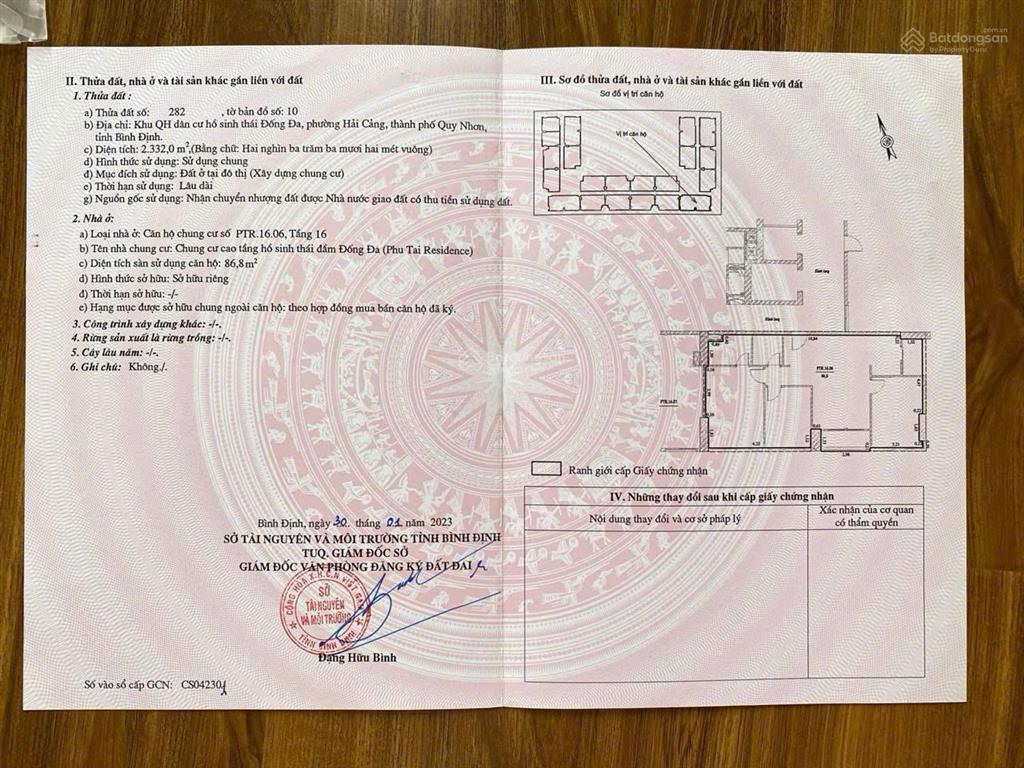 Batdongsan
.com.vn
by PropertyGuru
II. Thửa đất, nhà ở và tài sản khác gắn liền với đất
1. Thửa đất :
a) Thửa đất số: 282 , tờ bản đồ số: 10
b) Địa chỉ: Khu QH dân cư hồ sinh thái Đống Đa, phường Hải Cảng, thành phố Quy Nhơn,
tỉnh Bình Định.
c) Diện tích: 2.332,0 m²,(Bằng chữ: Hai nghìn ba trăm ba mươi hai mét vuông)
d) Hình thức sử dụng: Sử dụng chung
đ) Mục đích sử dụng: Đất ở tại đô thị (Xây dựng chung cư)
e) Thời hạn sử dụng: Lâu dài
g) Nguồn gốc sử dụng: Nhận chuyển nhượng đất được Nhà nước giao đất có thu tiền sử dụng đất.
2. Nhà ở:
a) Loại nhà ở: Căn hộ chung cư số PTR.16.06, Tầng 16
b) Tên nhà chung cư: Chung cư cao tầng hồ sinh thái đầm Đống Đa (Phu Tai Residence)
c) Diện tích sàn sử dụng căn hộ: 86,8m²
d) Hình thức sở hữu: Sở hữu riêng
đ) Thời hạn sở hữu: -/-
e) Hạng mục được sở hữu chung ngoài căn hộ: theo hợp đồng mua bán căn hộ đã ký.
3. Công trình xây dựng khác: -/-.
4. Rừng sản xuất là rừng trồng: -/-.
5. Cây lâu năm: -/-.
6. Ghi chú: Không./.
Bình Định, ngày 30 tháng 01 năm 2023
SỞ TÀI NGUYÊN VÀ MÔI TRƯỜNG TỈNH BÌNH ĐỊNH
TUQ. GIÁM ĐỐC SỞ
GIÁM ĐỐC VĂN PHÒNG ĐĂNG KÝ ĐẤT ĐAI
CỘNG HÒA X.H.C.N VIỆT NAM
SỞ
TÀI NGUYÊN
VÀ MÔI TRƯỜNG
TỈNH BÌNH ĐỊNH
Đặng Hữu Bình
Số vào sổ cấp GCN: CS04230
III. Sơ đồ thửa đất, nhà ở và tài sản khác gắn liền với đất
Sơ đồ vị trí căn hộ
Vị trí căn hộ
Hành lang
Hành lang
PTR.16.06
PTR.16.07
Ranh giới cấp Giấy chứng nhận
IV. Những thay đổi sau khi cấp giấy chứng nhận
Nội dung thay đổi và cơ sở pháp lý
Xác nhận của cơ quan
có thẩm quyền
Batdongsan